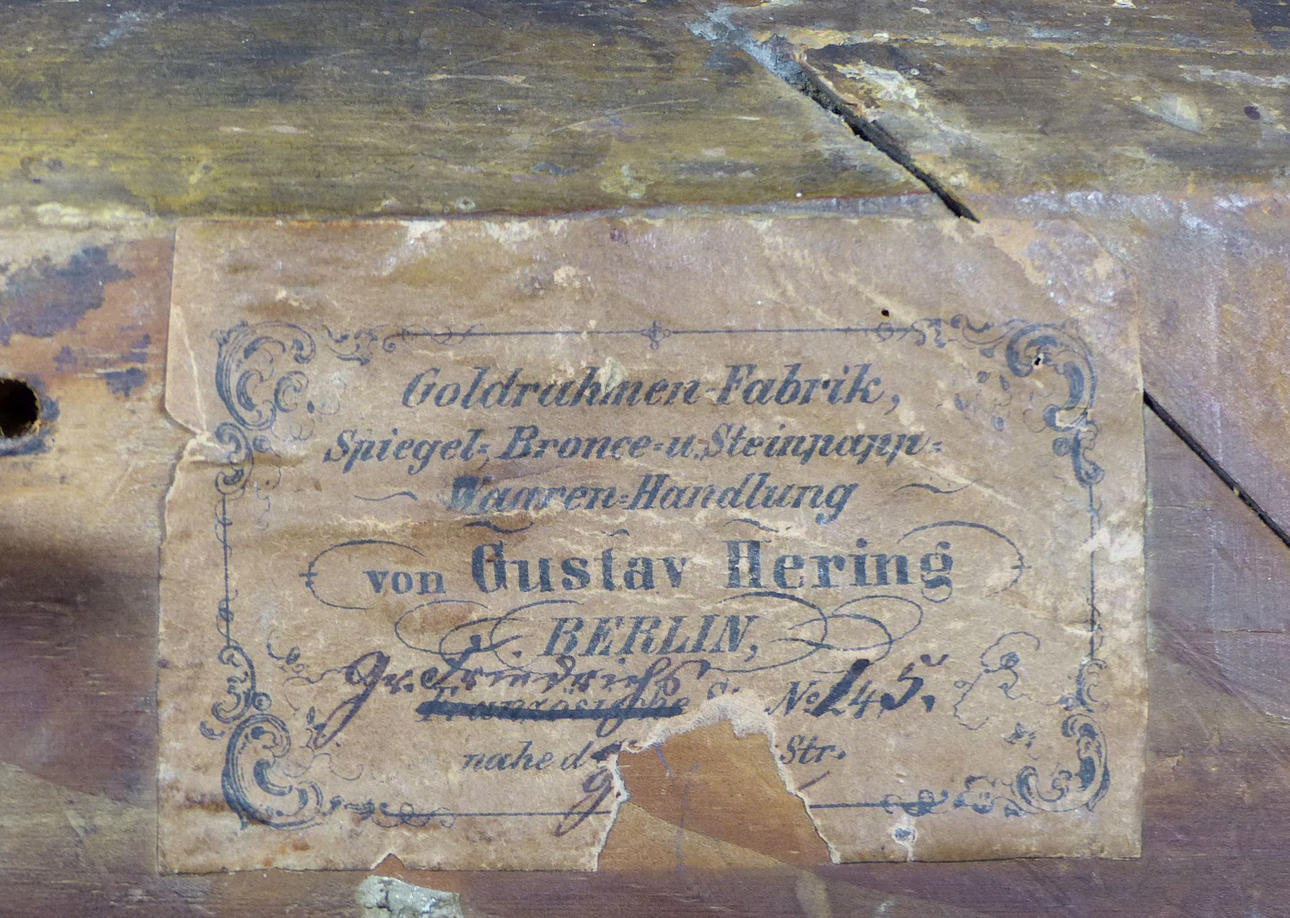 Goldrahmen-Fabrik,
Spiegel-, Bronce- u. Steinpapp-
Waaren-Handlung
von Gustav Hering
BERLIN,
Gr. Friedrichs
Französische St No 145.
nahe d Str.